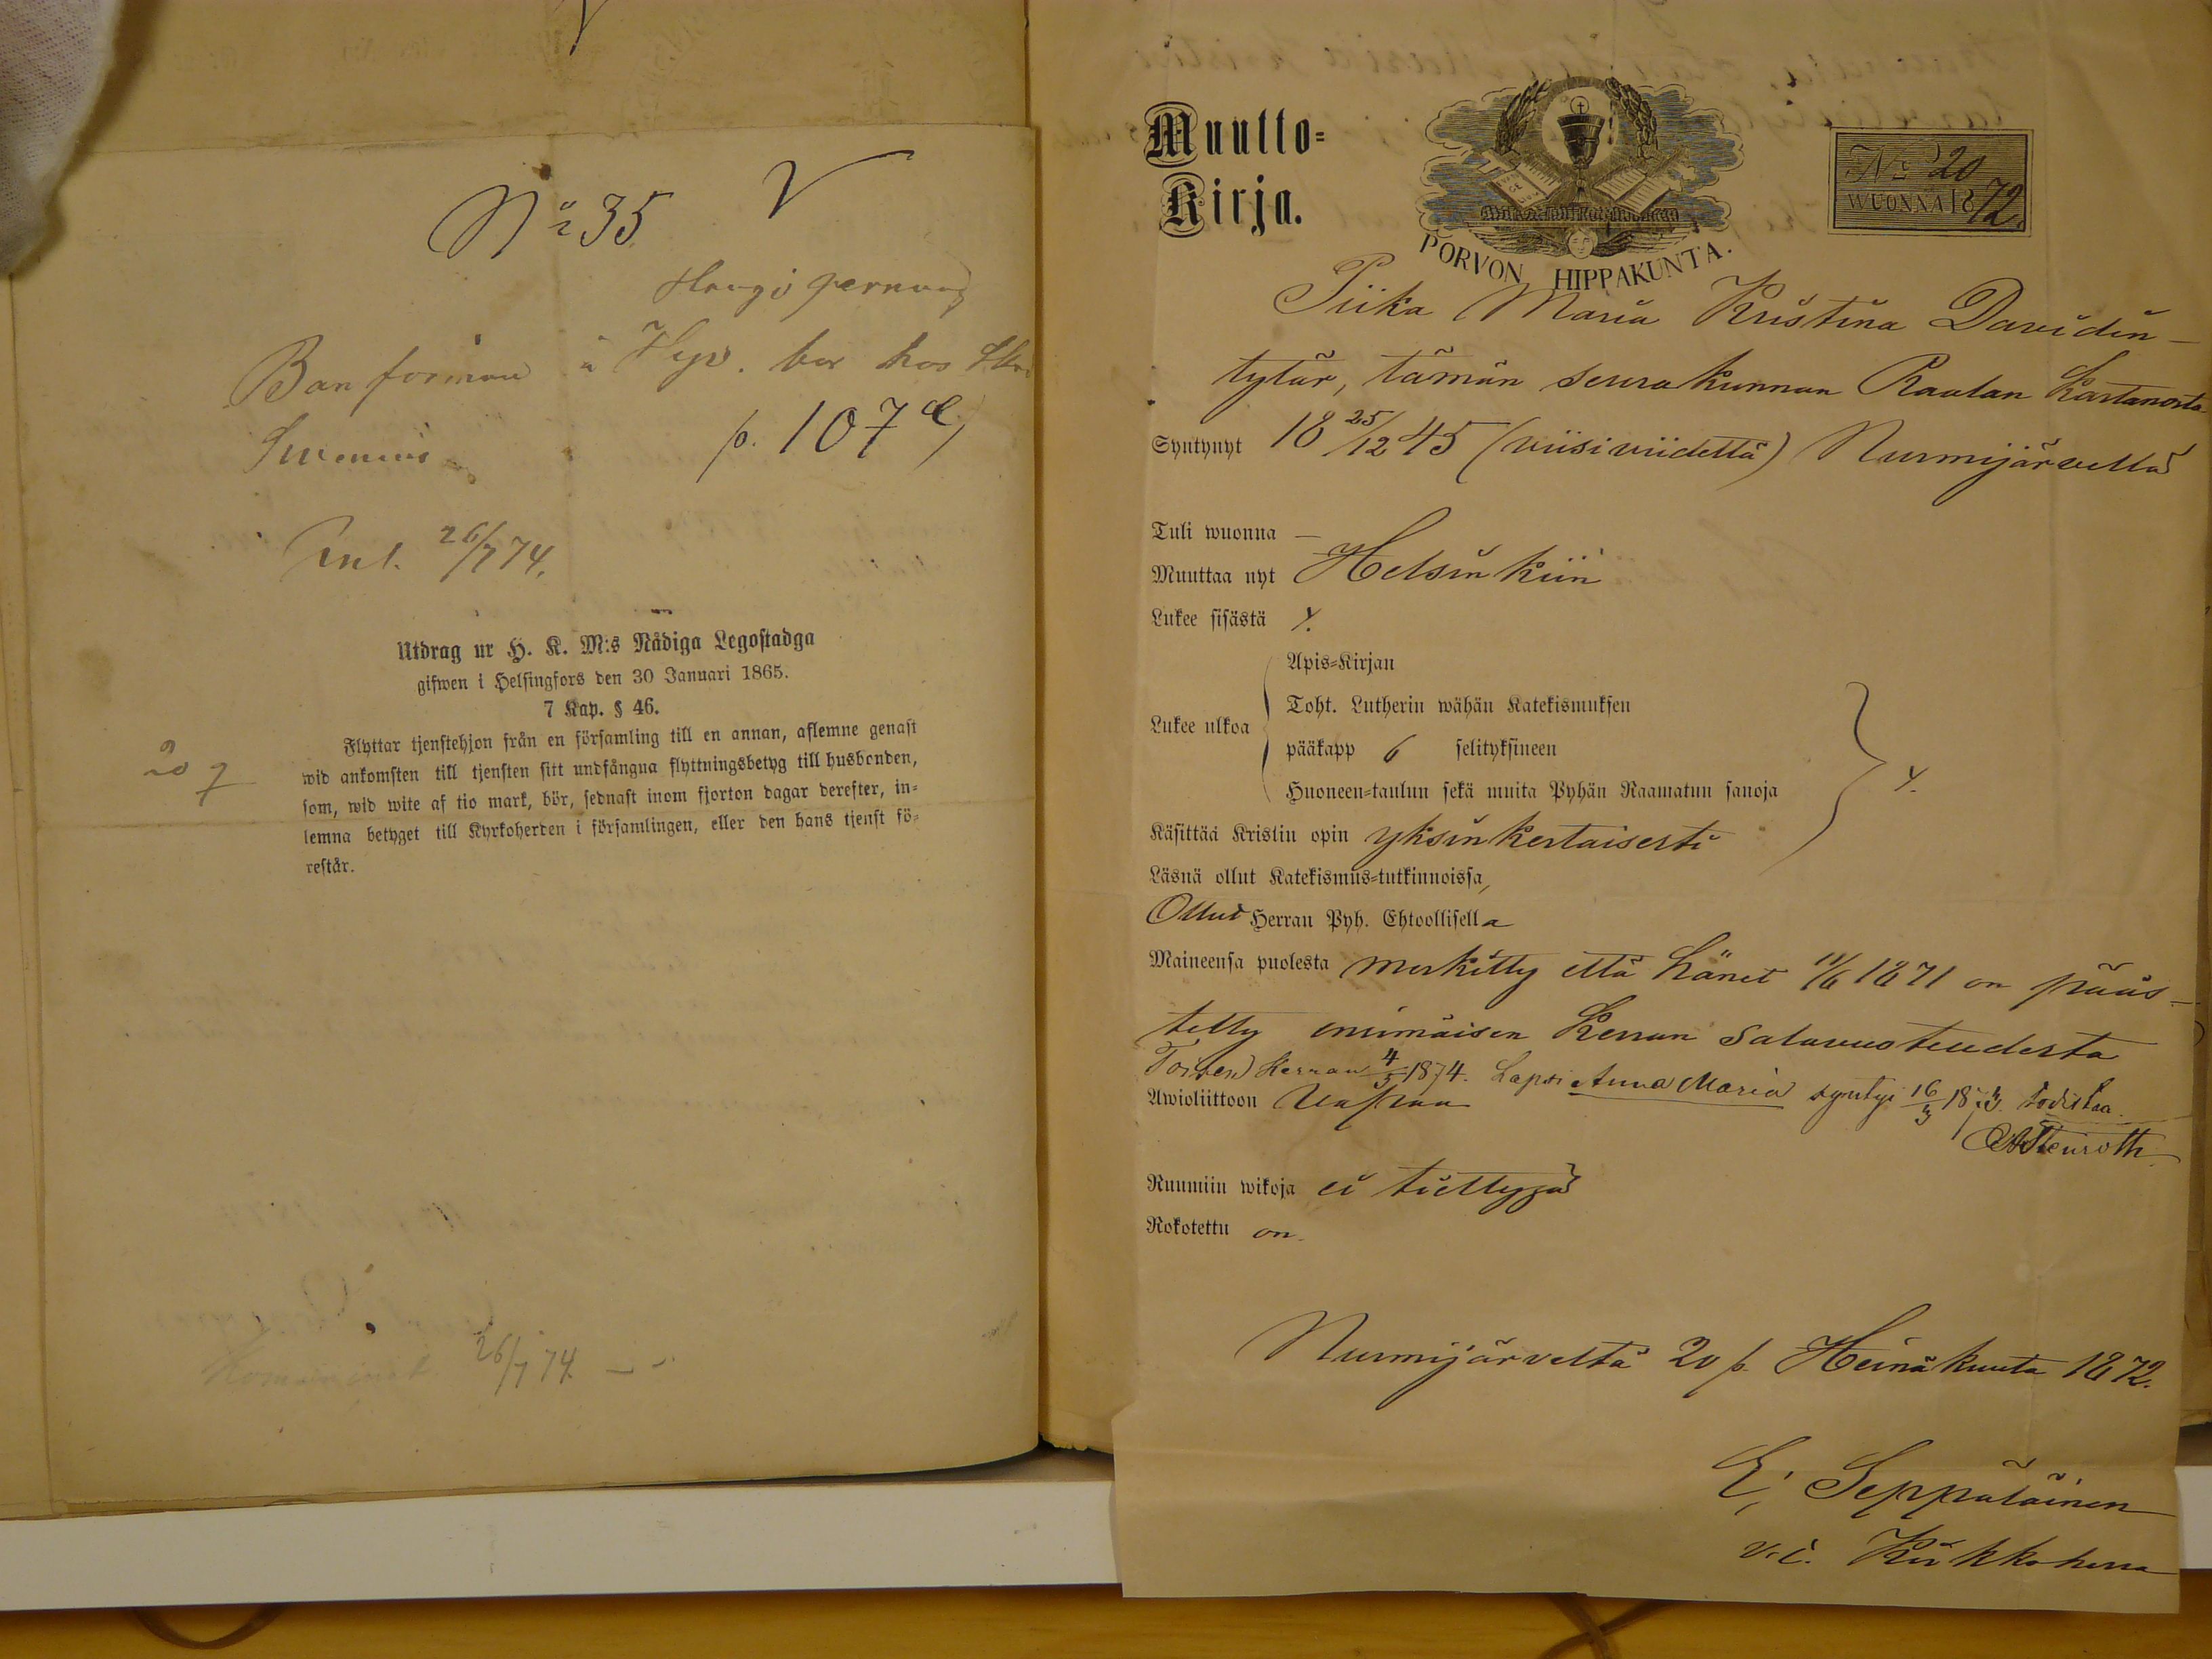 No 35
Banforman i Hyv. bor hos
p. 107
Ank. 26/7 74.
Utdrag ur H. K. M:s Nådiga Legostadga
gifwen i Helsingfors den 30 Januari 1865.
7 Kap. § 46.
Flyttar tjenstehjon från en församling till en annan, aflemne genast
wid ankomsten till tjensten sitt undfångna flyttningsbetyg till husbonden,
som, wid wite af tio mark, bör, sednast inom fjorton dagar derefter, in-
lemna betyget till Kyrkoherden i församlingen, eller den hans tjenst fö-
restår.
26/7 74.
Muutto-
Kirja.
PORVON HIPPAKUNTA.
No 20
WUONNA 1872.
Piika Maria Kristina Davidin-
tytär, tämän seurakunnan Raalan Kartanosta
Syntynyt 18 25/12 45 (viisiviidettä) Nurmijärvellä
Tuli wuonna —
Muuttaa nyt Helsinkiin
Lukee sisästä y.
Apis-Kirjan
Toht. Lutherin wähän Katekismuksen
Lukee ulkoa
pääkapp 6 selityksineen
Huoneen-taulun sekä muita Pyhän Raamatun sanoja
y.
Käsittää Kristin opin yksinkertaisesti
Läsnä ollut Katekismus-tutkinnoissa,
Ollut Herran Pyh. Ehtoollisella
Maineensa puolesta merkitty että hänet 11/6 1871 on pääs-
tetty ensimäisen kerran salavuoteudesta
Toisen kerran 4/5 1874. Lapsi Anna Maria syntyi 16/3 187 todistaa.
Awioliittoon Vapaa
Ruumiin wikoja ei tiettyjä
Rokotettu on.
Nurmijärveltä 20 p. Heinäkuuta 1872.
E. Seppäläinen
v. t. Kirkkoherra